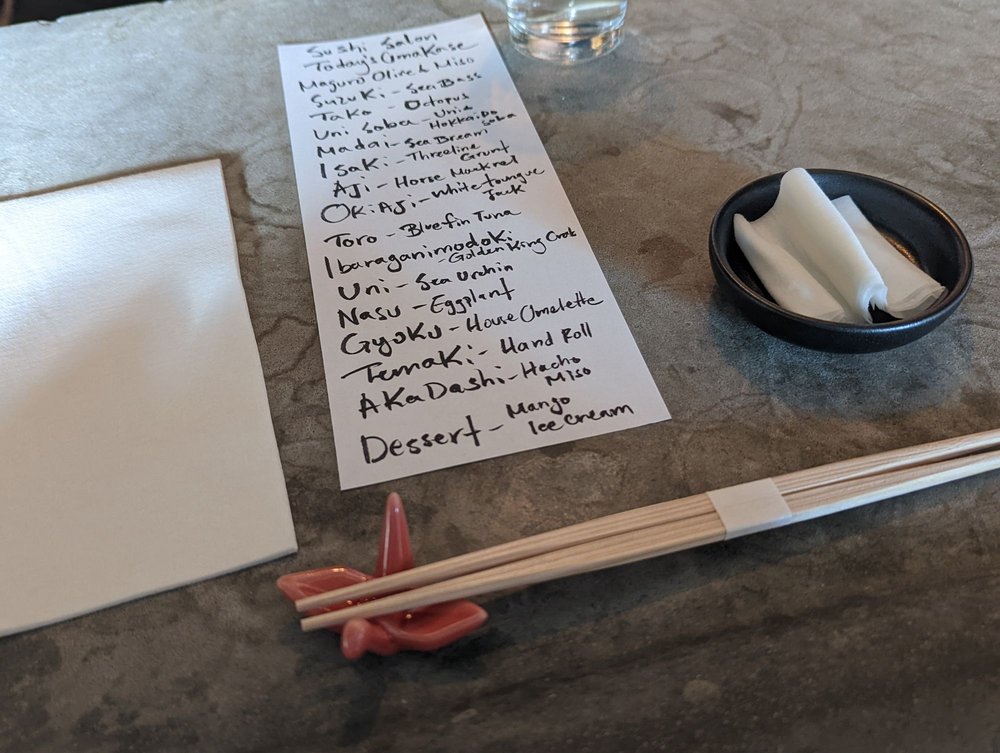 Sushi Salon
Today's Omakase
Maguro Olive & Miso
Suzuki - Sea Bass
Tako - Octopus
Uni Soba - Uni &
Hokkaido
Soba
Madai - Sea Bream
Isaki - Threeline
Grunt
Aji - Horse Mackrel
OKi Aji - White toungue
Jack
Toro - Bluefin Tuna
Ibaraganimodoki
- Golden King Crab
Uni - Sea Urchin
Nasu - Eggplant
Gyoku - House Omelette
Temaki - Hand Roll
AKaDashi - Hacho
Miso
Dessert - Mango
Ice Cream